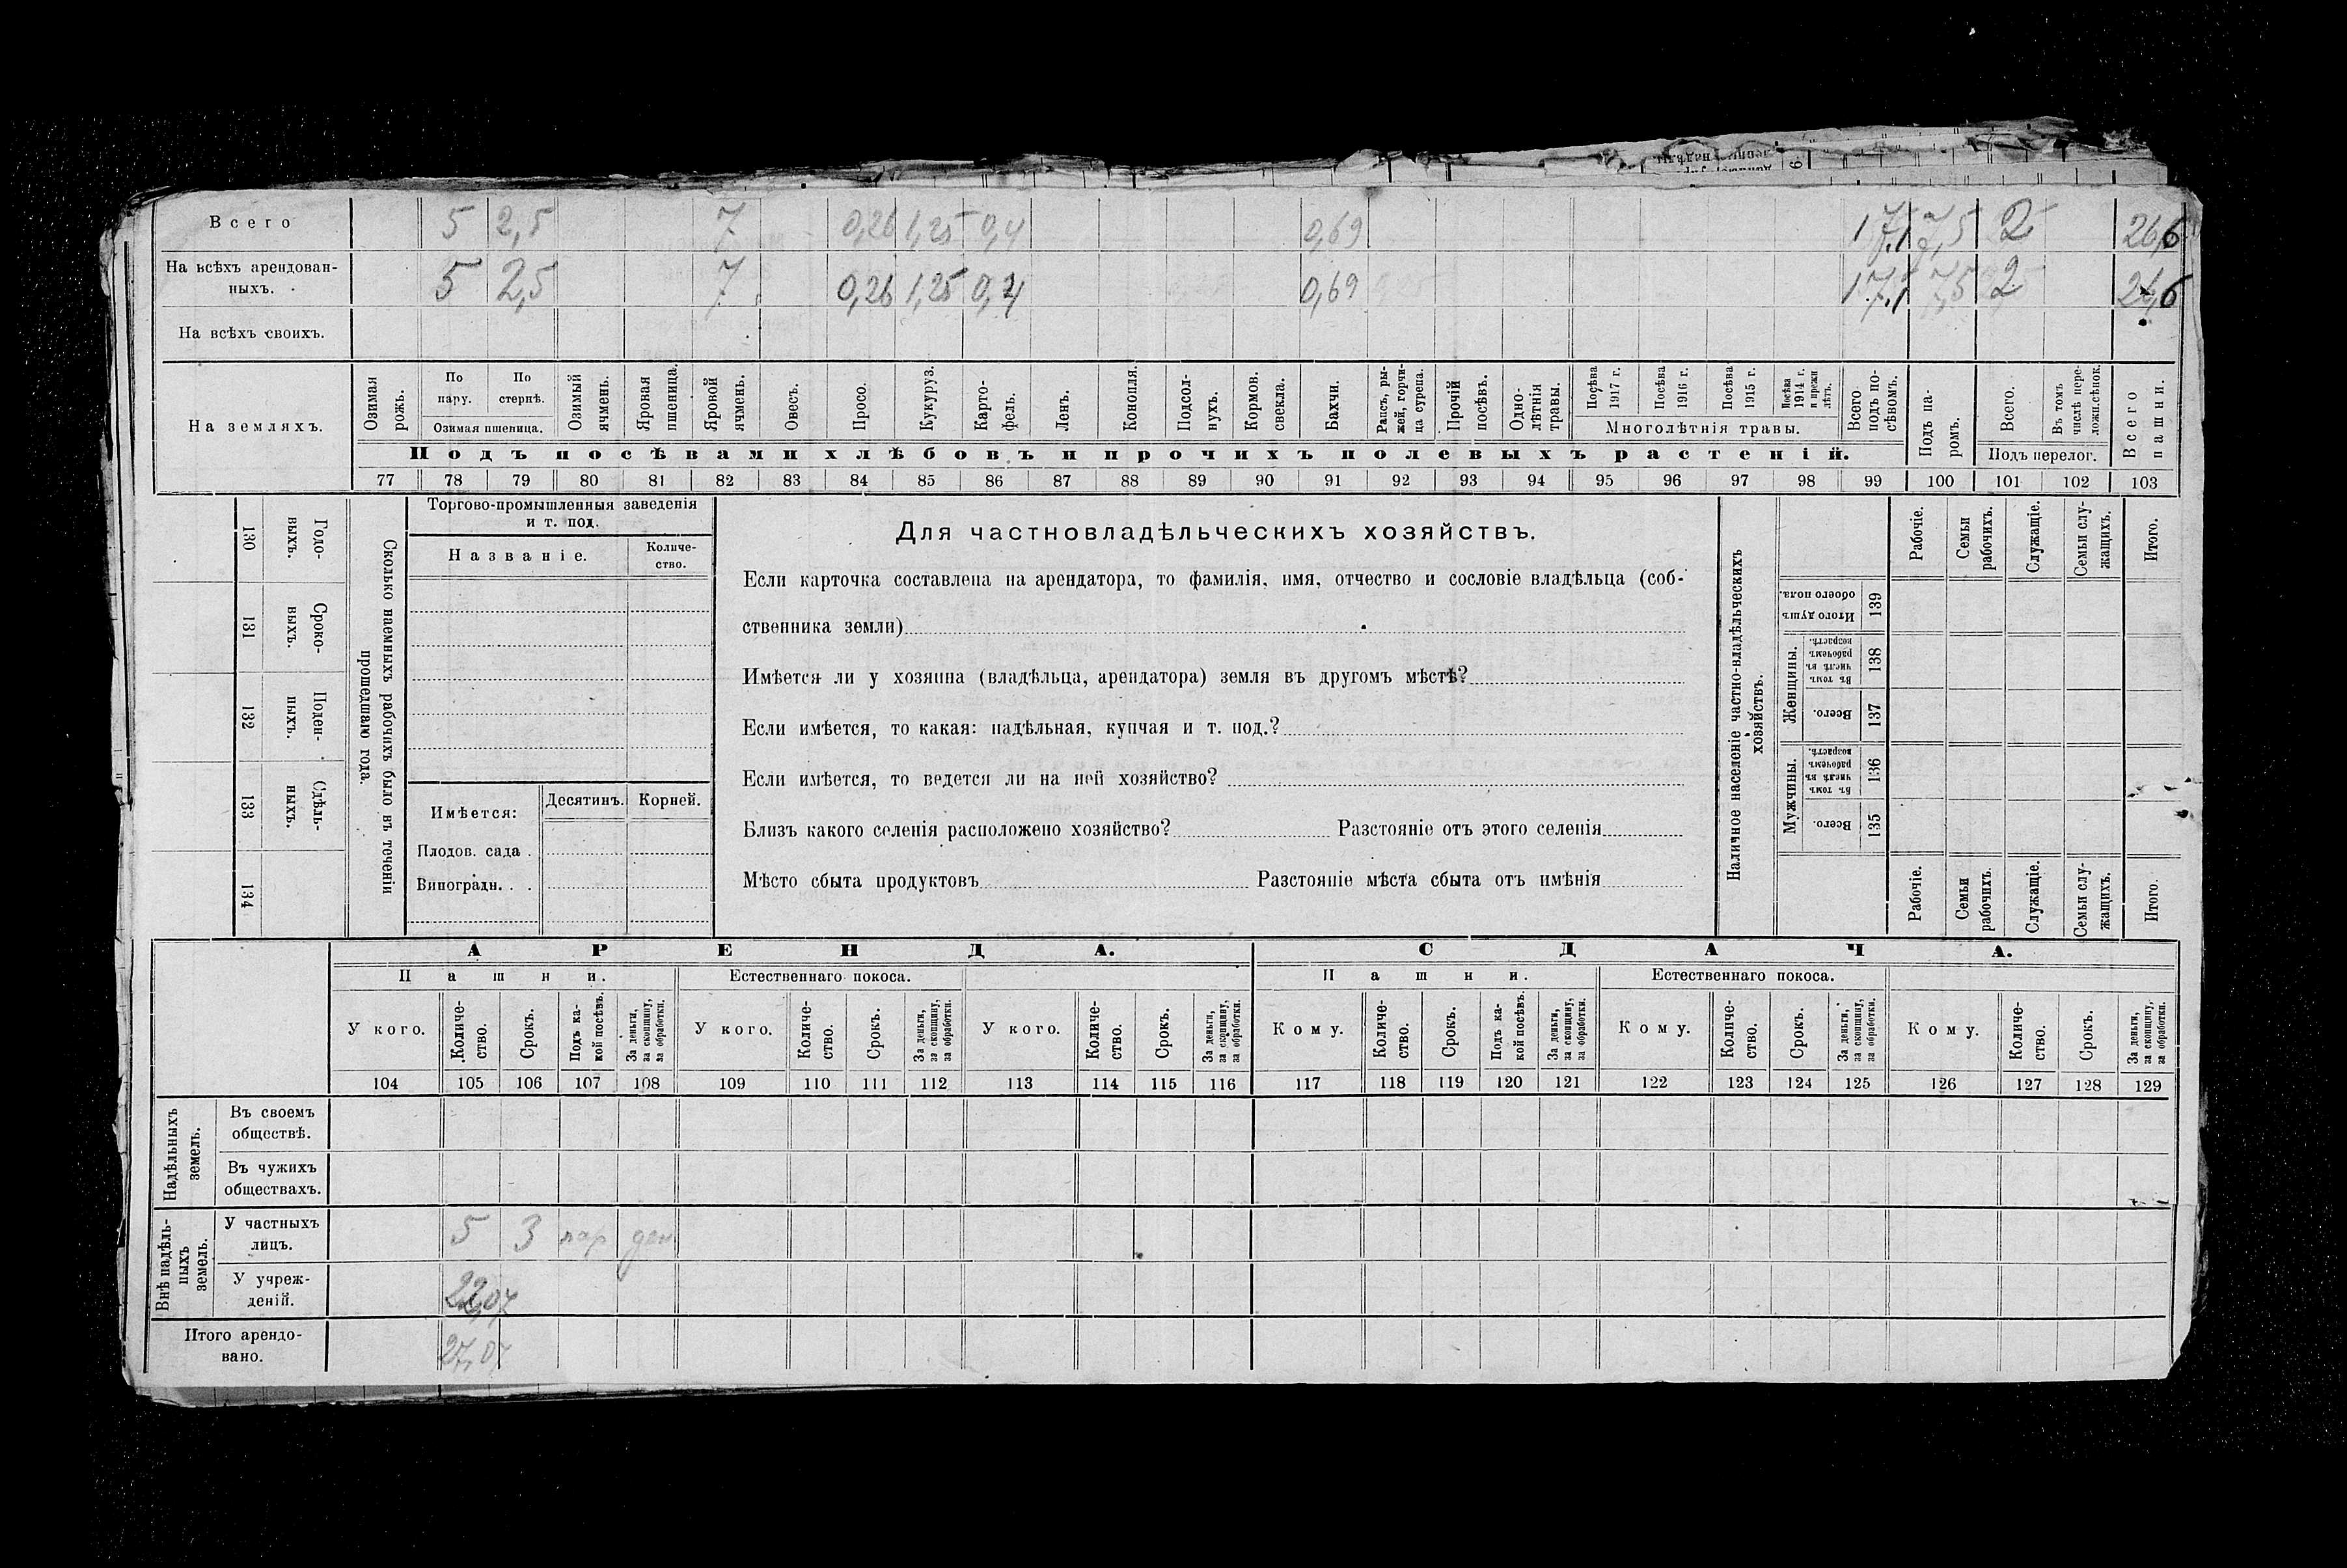 Всего 5 2,5 7 0,26 1,25 0,4 0,69 17,1 7,5 2 26,6
На всѣхъ арендован-
ныхъ. 5 2,5 7 0,26 1,25 0,4 0,69 17,1 7,5 2 26,6
На всѣхъ своихъ.
На земляхъ.
Озимая рожь.
По пару.
По стернѣ.
Озимая пшеница.
Озимый ячмень.
Яровая пшеница.
Яровой ячмень.
Овесъ.
Просо.
Кукуруз.
Карто-
фель.
Ленъ.
Конопля.
Подсол-
нухъ.
Кормов. свекла.
Бахчи.
Рапсъ, ры-
жей, горчи-
ца сурепа.
Прочій посѣвъ.
Одно-
лѣтнія травы.
Посѣва 1917 г.
Посѣва 1916 г.
Посѣва 1915 г.
Посѣва 1914 г. и прежн лѣтъ.
Многолѣтнія травы.
Всего подъ по-
сѣвомъ.
Подъ па-
ромъ.
Всего.
Въ томъ числѣ пере-
ложн.сѣнок.
Подъ перелог.
Всего пашни.
Подъ посѣвами хлѣбовъ и прочихъ полевыхъ растеній.
77 78 79 80 81 82 83 84 85 86 87 88 89 90 91 92 93 94 95 96 97 98 99 100 101 102 103
130 Годо-
выхъ.
131 Сроко-
выхъ.
132 Поден-
ныхъ.
133 Сдѣль-
ныхъ.
134
Сколько наемныхъ рабочихъ было въ теченіи
прошедшаго года.
Торгово-промышленныя заведенія
и т. под.
Названіе.
Количе-
ство.
Имѣется:
Десятинъ.
Корней.
Плодов. сада .
Виноградн. . .
Для частновладѣльческихъ хозяйствъ.
Если карточка составлена на арендатора, то фамилія, имя, отчество и сословіе владѣльца (соб-
ственника земли)
Имѣется ли у хозяина (владѣльца, арендатора) земля въ другомъ мѣстѣ?
Если имѣется, то какая: надѣльная, купчая и т. под.?
Если имѣется, то ведется ли на ней хозяйство?
Близъ какого селенія расположено хозяйство? Разстояніе отъ этого селенія
Мѣсто сбыта продуктовъ Разстояніе мѣста сбыта отъ имѣнія
Наличное населеніе частно-владѣльческихъ
хозяйствъ.
Рабочіе.
Семьи рабочихъ.
Служащіе.
Семьи слу-
жащихъ.
Итого.
Итого душъ обоего пола. 139
Женщины.
Въ томъ числѣ въ рабочемъ возрастѣ. 138
Всего. 137
Мужчины.
Въ томъ числѣ въ рабочемъ возрастѣ. 136
Всего. 135
Рабочіе.
Семьи рабочихъ.
Служащіе.
Семьи слу-
жащихъ.
Итого.
АРЕНДА. СДАЧА.
Пашни. Естественнаго покоса. Пашни. Естественнаго покоса.
У кого.
Количе-
ство.
Срокъ.
Подъ ка-
кой посѣвъ.
За деньги,
за скопщину,
за обработки.
У кого.
Количе-
ство.
Срокъ.
За деньги,
за скопщину,
за обработки.
У кого.
Количе-
ство.
Срокъ.
За деньги,
за скопщину,
за обработки.
Кому.
Количе-
ство.
Срокъ.
Подъ ка-
кой посѣвъ.
За деньги,
за скопщину,
за обработки.
Кому.
Количе-
ство.
Срокъ.
За деньги,
за скопщину,
за обработки.
Кому.
Количе-
ство.
Срокъ.
За деньги,
за скопщину,
за обработки.
104 105 106 107 108 109 110 111 112 113 114 115 116 117 118 119 120 121 122 123 124 125 126 127 128 129
Надѣльныхъ
земель.
Въ своемъ
обществѣ.
Въ чужихъ
обществахъ.
Внѣ надѣль-
ныхъ
земель.
У частныхъ
лицъ. 5 3 пар ден
У учреж-
деній. 22,07
Итого арендо-
вано. 27,07